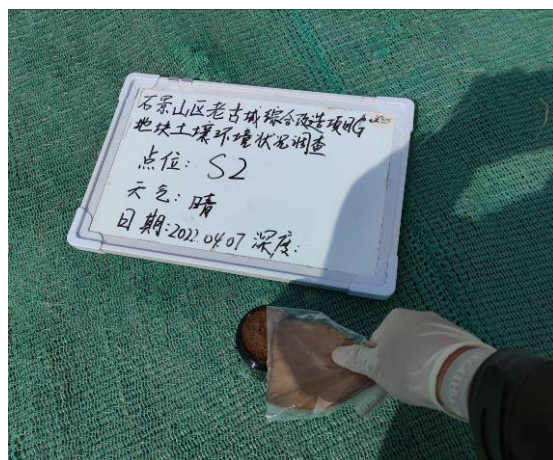 石景山区老古城综合改造项目G
地块土壤环境状况调查
点位: S2
天气: 晴
日期: 2022.04.07 深度: